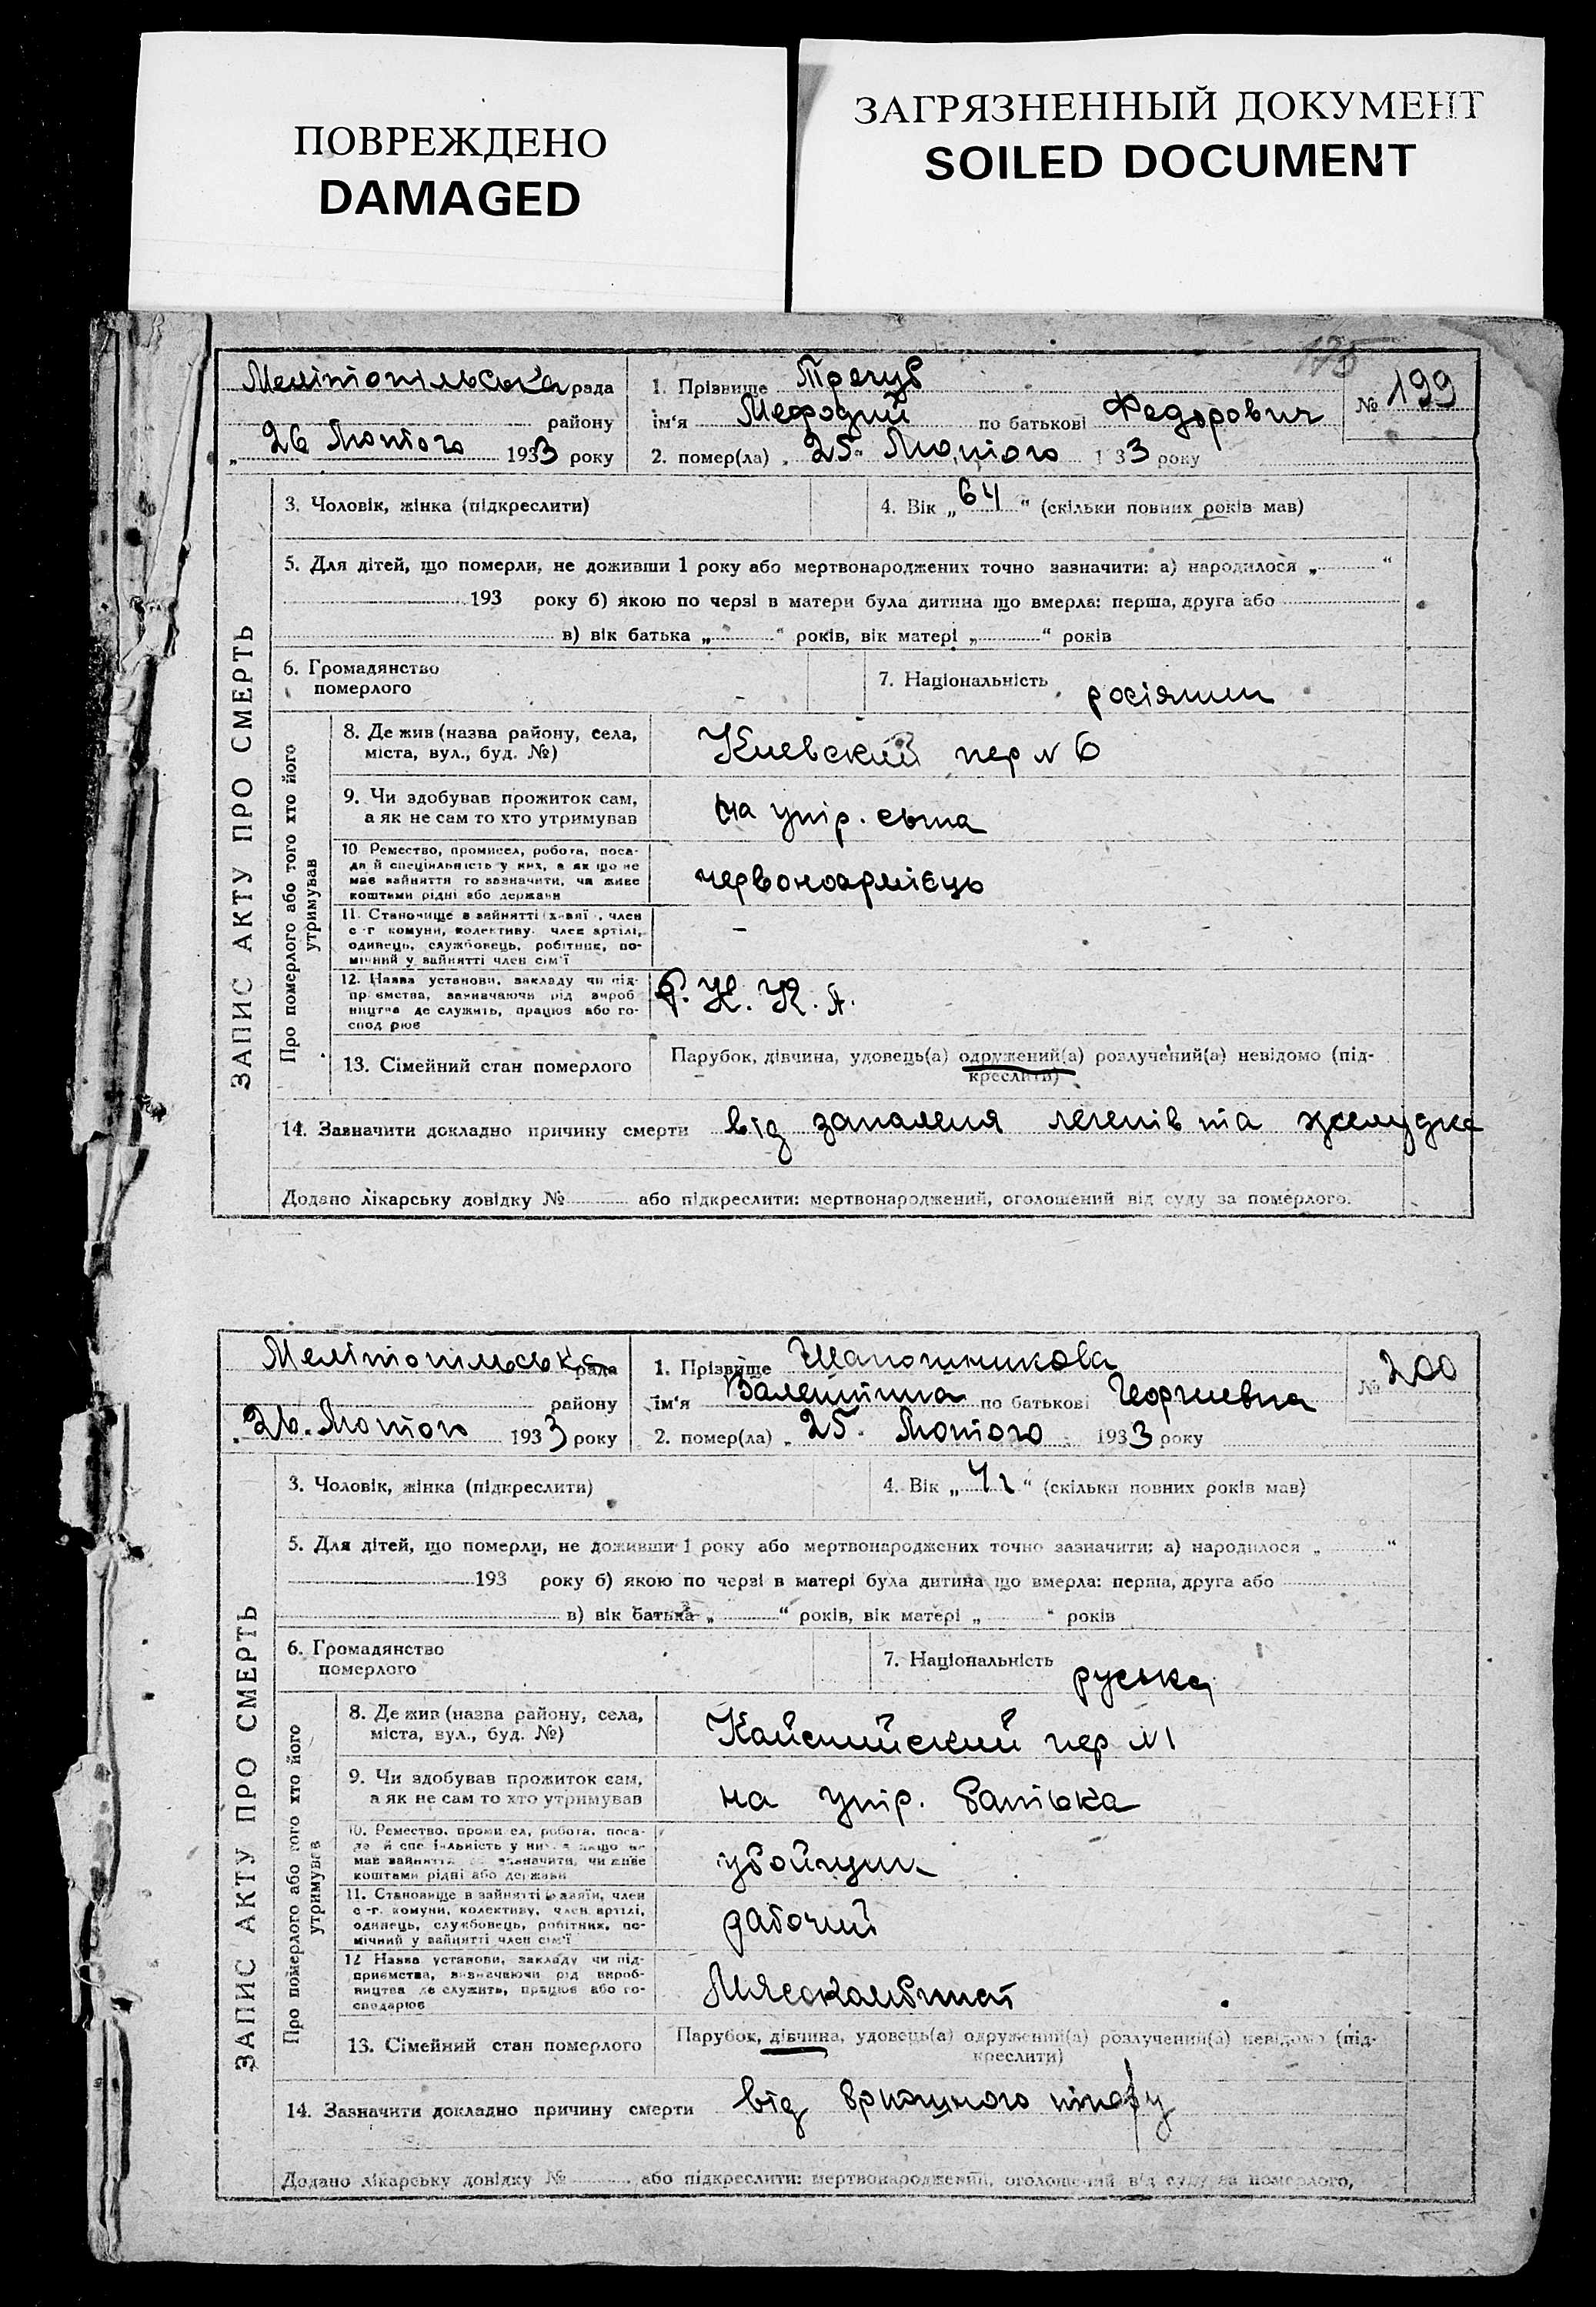 ПОВРЕЖДЕНО
DAMAGED
ЗАГРЯЗНЕННЫЙ ДОКУМЕНТ
SOILED DOCUMENT
175
ЗАПИС АКТУ ПРО СМЕРТЬ
Мелітопільська рада
району
„ 26 Лютого 1933 року
1. Прізвище Трегуб
ім'я Мефодий по батькові Федорович
№ 199
2. помер(ла) „ 25 Лютого 1933 року
3. Чоловік, жінка (підкреслити)
4. Вік „ 64 “ (скільки повних років мав)
5. Для дітей, що померли, не доживши 1 року або мертвонароджених точно зазначити: а) народилося „ “
193 року б) якою по черзі в матери була дитина що вмерла: перша, друга або
в) вік батька „ “ років, вік матері „ “ років
6. Громадянство
померлого
7. Національність росіянин
Про померлого або того хто його
утримував
8. Де жив (назва району, села,
міста, вул., буд. №)
Киевский пер N 6
9. Чи здобував прожиток сам,
а як не сам то хто утримував
на утр. сына
10. Ремество, промисел, робота, поса-
да й спеціяльність у них, а як що не
має зайняття то зазначити, чи живе
коштами рідні або держави
червоноармієць
11. Становище в зайнятті (хазяї, член
с-г комуни, колективу, член артілі,
одинець, службовець, робітник, по-
мічний у зайнятті член сім'ї
-
12. Назва установи, закладу чи під-
приємства, зазначаючи рід вироб
ництва де служить, працює або го-
спод рює
Р. К. К. А.
13. Сімейний стан померлого
Парубок, дівчина, удовець(а) одружений(а) розлучений(а) невідомо (під-
креслити)
14. Зазначити докладно причину смерти від запаленя легенів та желудка
Додано лікарську довідку № або підкреслити: мертвонароджений, оголошений від суду за померлого.
ЗАПИС АКТУ ПРО СМЕРТЬ
Мелітопільська рада
району
„ 26. Лютого 1933 року
1. Прізвище Шапошникова
ім'я Валентина по батькові Георгиевна
№ 200
2. помер(ла) „ 25. Лютого 1933 року
3. Чоловік, жінка (підкреслити)
4. Вік „ 4 г “ (скільки повних років мав)
5. Для дітей, що померли, не доживши 1 року або мертвонароджених точно зазначити: а) народилося „ “
193 року б) якою по черзі в матері була дитина що вмерла: перша, друга або
в) вік батька „ “ років, вік матері „ “ років
6. Громадянство
померлого
7. Національність руська
Про померлого або того хто його
утримував
8. Де жив (назва району, села,
міста, вул., буд. №)
пер N 1
9. Чи здобував прожиток сам,
а як не сам то хто утримував
на утр. батька
10. Ремество, промисел, робота, поса-
да й спеціяльність у них, а якщо не
має зайняття то зазначити, чи живе
коштами рідні або держави
убойщик
11. Становище в зайнятті (хазяїн, член
с-г. комуни, колективу, член артілі,
одинець, службовець, робітник, по-
мічний у зайнятті член сім'ї
рабочий
12 Назва установи, закладу чи під-
приємства, зазначаючи рід вироб-
ництва де служить, працює або го-
сподарює
Мясокомбинат
13. Сімейний стан померлого
Парубок, дівчина, удовець(а) одружений(а) розлучений(а) невідомо (під-
креслити)
14. Зазначити докладно причину смерти від брюшного тіфу
Додано лікарську довідку № або підкреслити: мертвонароджений, оголошений від суду за померлого,